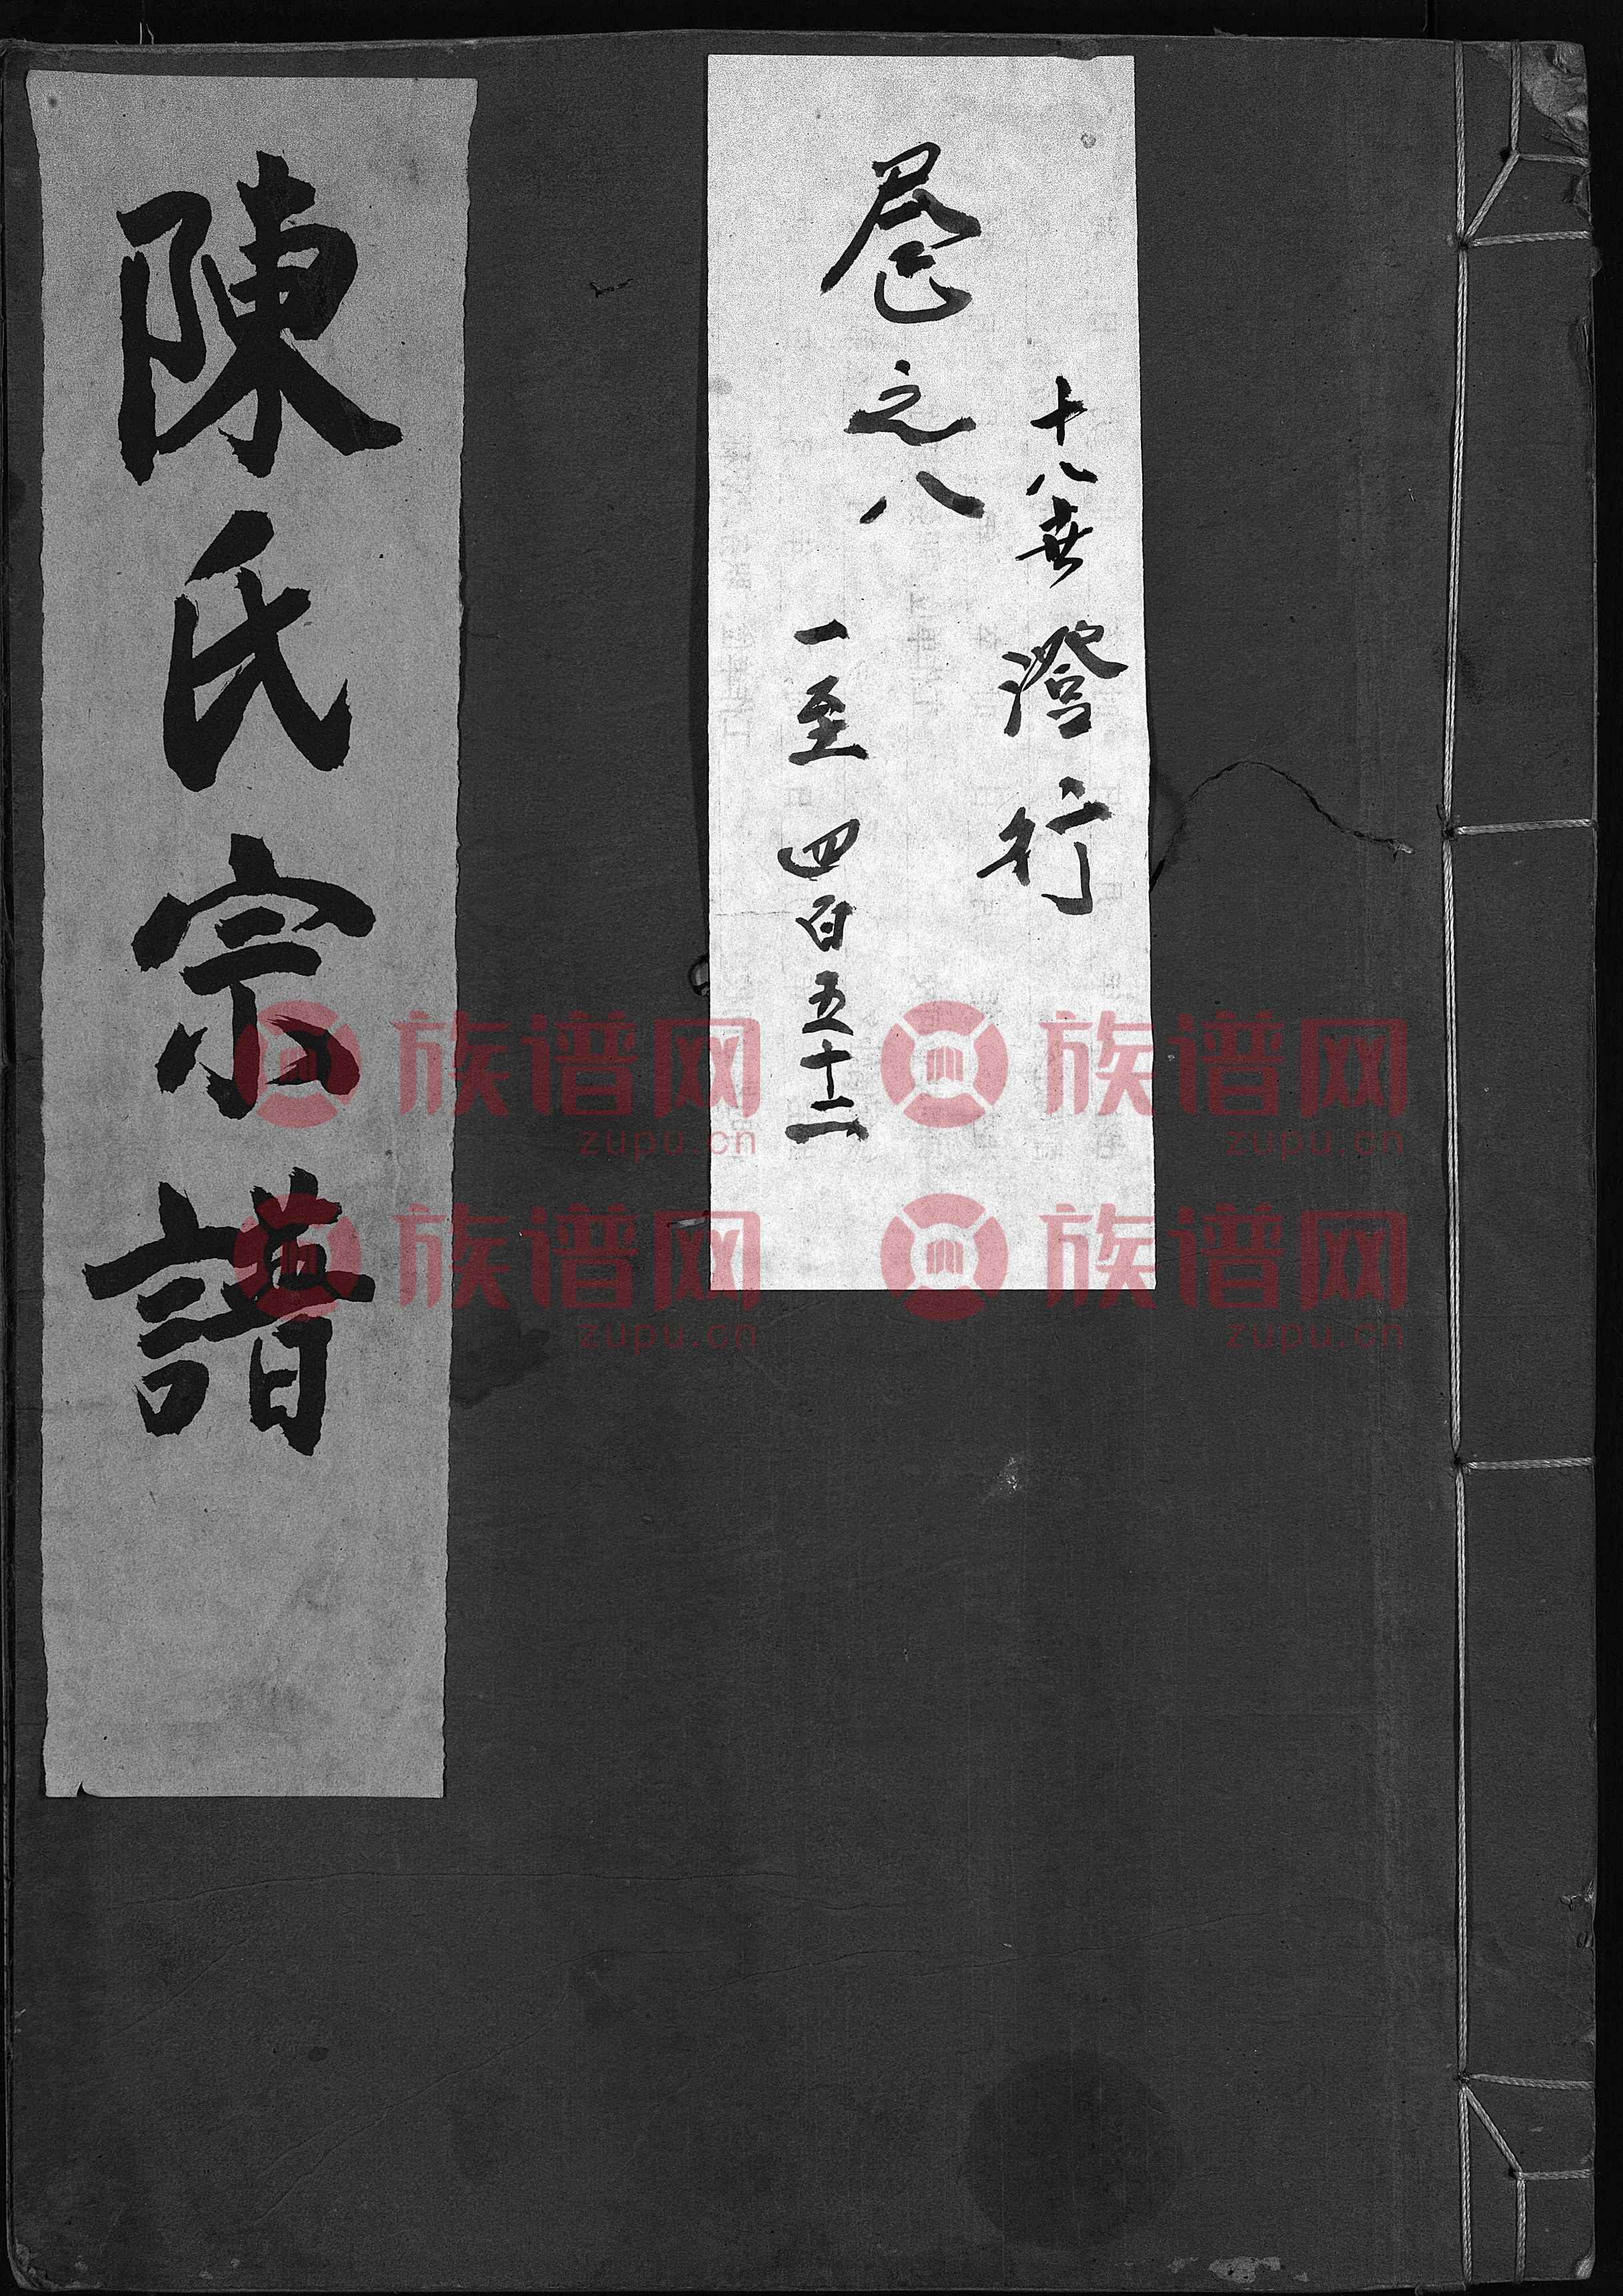 十八世澄行
卷之八
一至四百五十二
陳氏宗譜
族谱网 族谱网
zupu.cn zupu.cn
族谱网 族谱网
zupu.cn zupu.cn